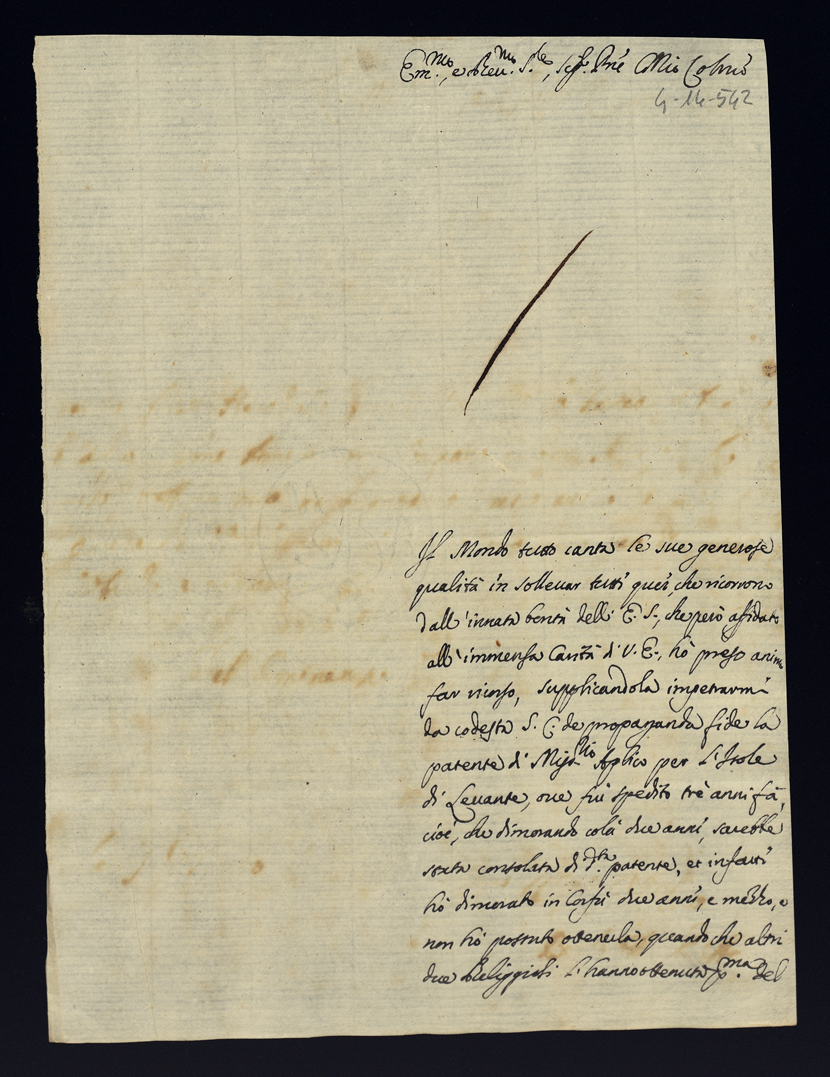 Em.mo, e Reu.mo S.re, Sig.r Prñe Mio Colmõ
4-14-542
Il Mondo tutto canta le sue generose
qualità in solleuar tutti quei, che ricorrono
dall'innata bontà dell' E. S., che però affidato
all'immensa Carità di V. E., hò preso anim
far ricorso, supplicandola impetrarmi
da codesta S. C. de propaganda fide la
patente di Miss.rio Aplico per l'Isole
di Leuante, oue fui spedito trè anni fà,
cioè, che dimorando colà due anni, sarebbe
stata consolata di d.ta patente, et infatti
hò dimorato in Corfù due anni, e mezzo, e
non hò possuto ottenerla, quando che altri
due Religgiosi l'hanno ottenuta p.ma del